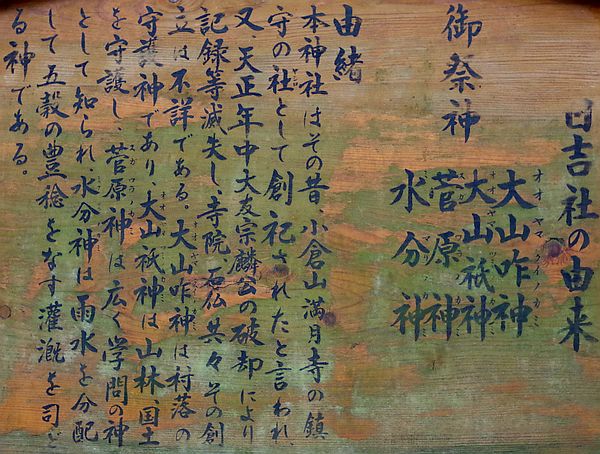 日吉社の由来
御祭神
大山咋神
大山祇神
菅原神
水分神
由緒
本神社はその昔、小倉山満月寺の鎮
守の社として創祀されたと言われ、
又 天正年中大友宗麟公の破却により
記録等滅失し、寺院、石仏共々その創
立は不詳である。大山咋神は村落の
守護神であり、大山祇神は山林、国土
を守護し、菅原神は広く学問の神
として知られ、水分神は雨水を分配
して五穀の豊稔をなす灌漑を司ど
る神である。